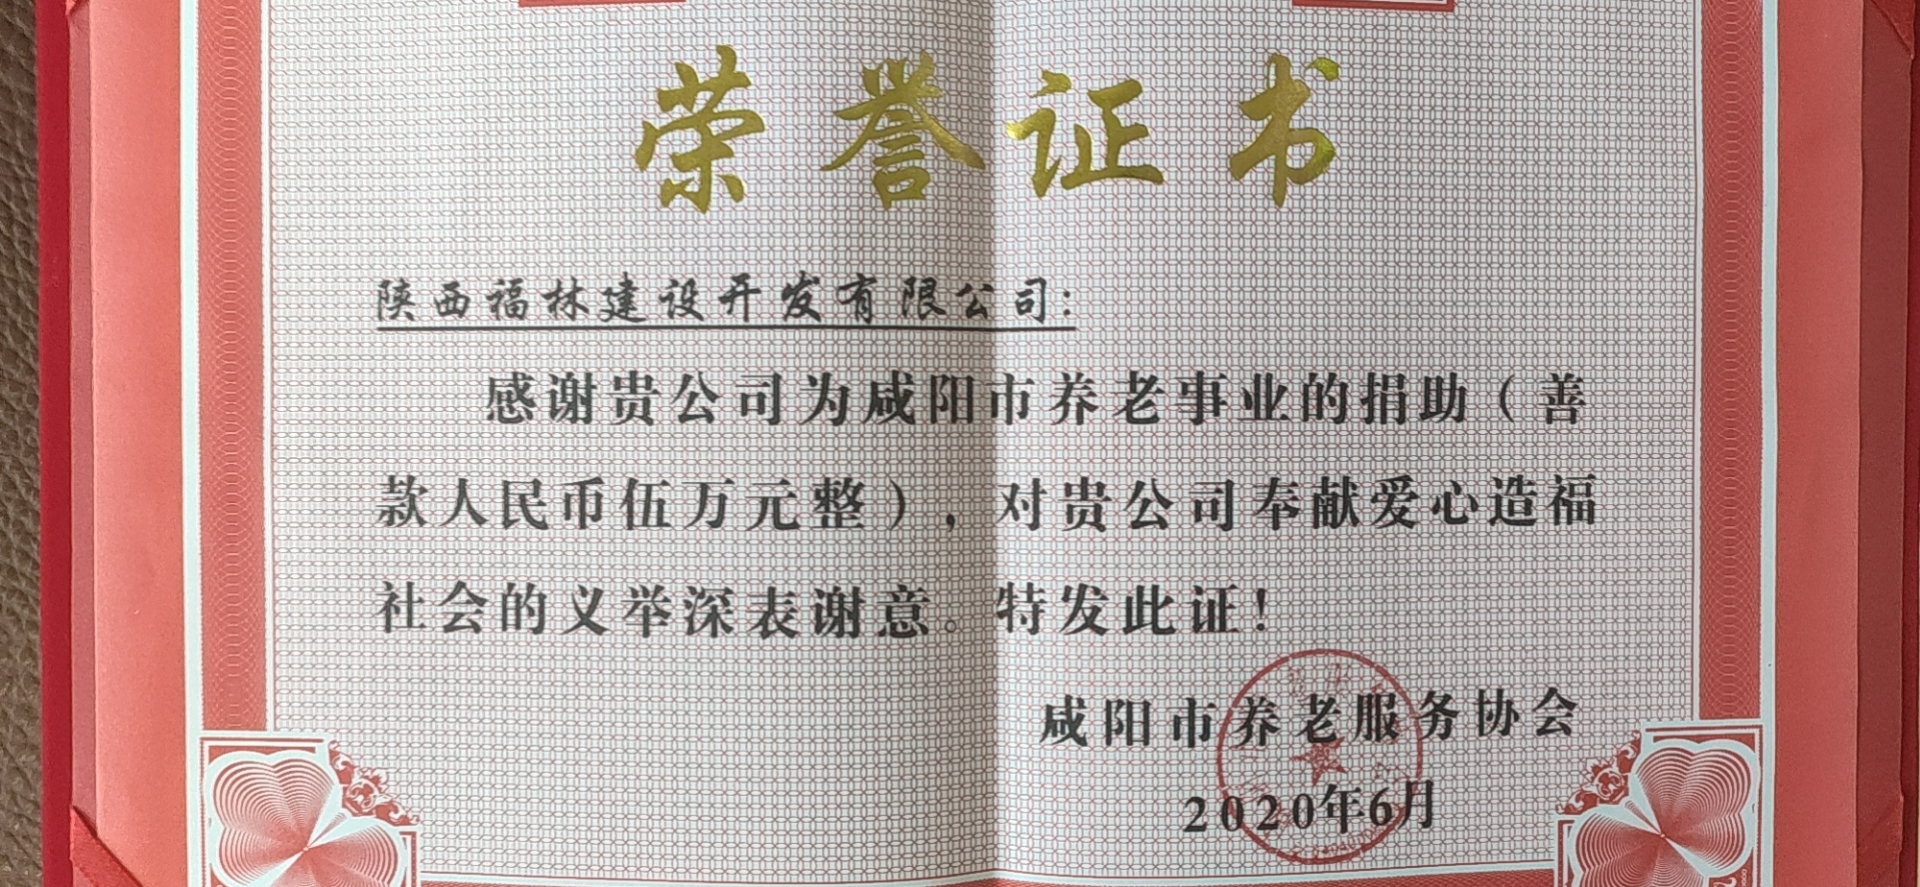 荣誉证书
陕西福林建设开发有限公司:
感谢贵公司为咸阳市养老事业的捐助（善
款人民币伍万元整），对贵公司奉献爱心造福
社会的义举深表谢意。特发此证！
咸阳市养老服务协会
2020年6月